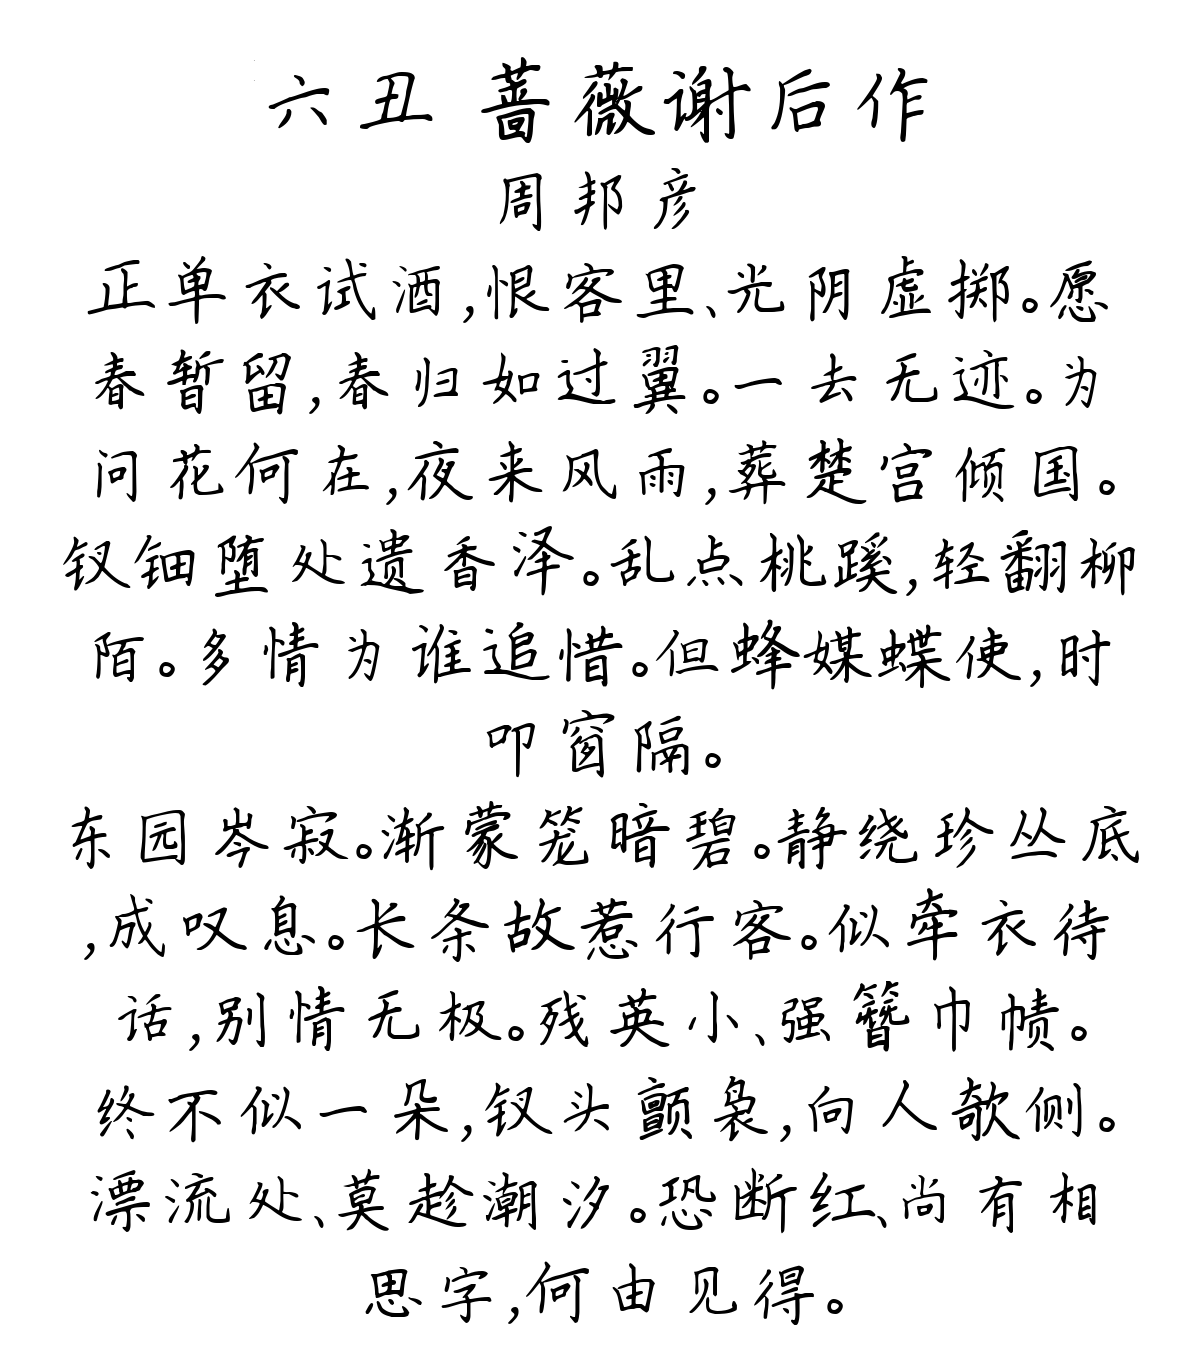 六丑 蔷薇谢后作
周邦彦
正单衣试酒,恨客里、光阴虚掷。愿
春暂留,春归如过翼。一去无迹。为
问花何在,夜来风雨,葬楚宫倾国。
钗钿堕处遗香泽。乱点桃蹊,轻翻柳
陌。多情为谁追惜。但蜂媒蝶使,时
叩窗隔。
东园岑寂。渐蒙笼暗碧。静绕珍丛底
,成叹息。长条故惹行客。似牵衣待
话,别情无极。残英小、强簪巾帻。
终不似一朵,钗头颤袅,向人欹侧。
漂流处、莫趁潮汐。恐断红、尚有相
思字,何由见得。